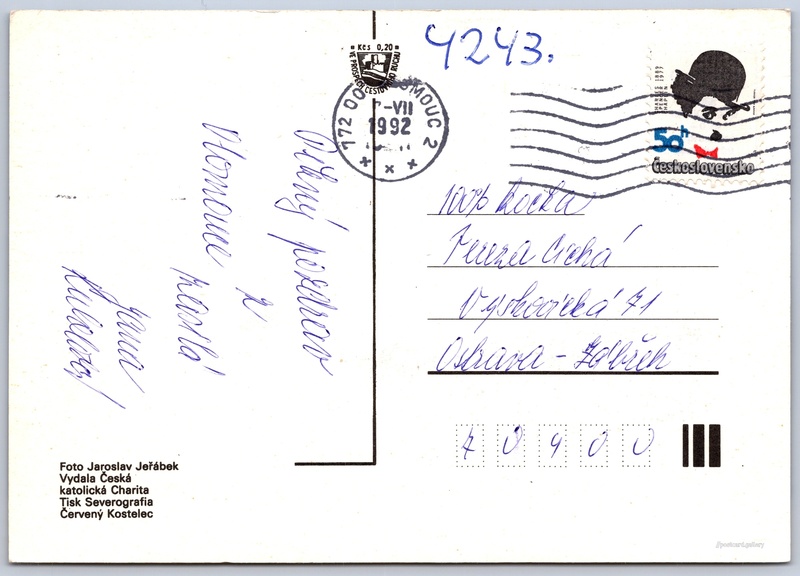 4243.
Kčs 0,20
VE PROSPĚCH CESTOVNÍHO RUCHU
772 00 OLOMOUC 2
-VII
1992
50h
Československo
Pěkný pozdrav
z
Olomouce
zasílá
Jana
100% kočka
Tereza Cichá
Výškovická 71
Ostrava - Zábřeh
70400
Foto Jaroslav Jeřábek
Vydala Česká
katolická Charita
Tisk Severografia
Červený Kostelec